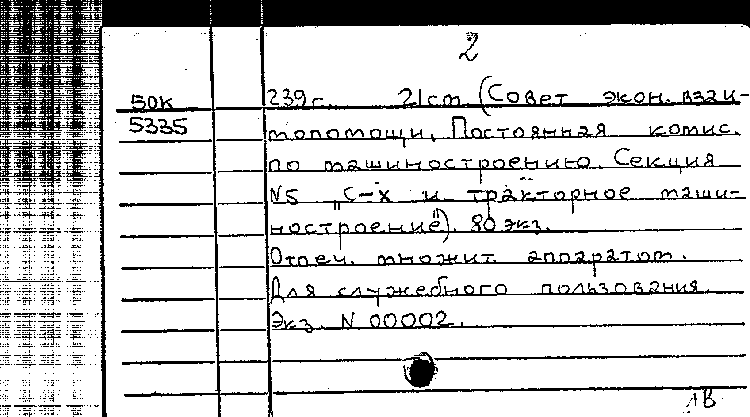 2
50К 239с. 21cm. (Совет экон. взаи-
5335 мопомощи. Постоянная комис.
по машиностроению. Секция
N5 „С-х и тракторное маши-
ностроение"). 80 экз.
Отпеч. множит. аппаратом.
Для служебного пользования.
Экз. N 00002.
1В